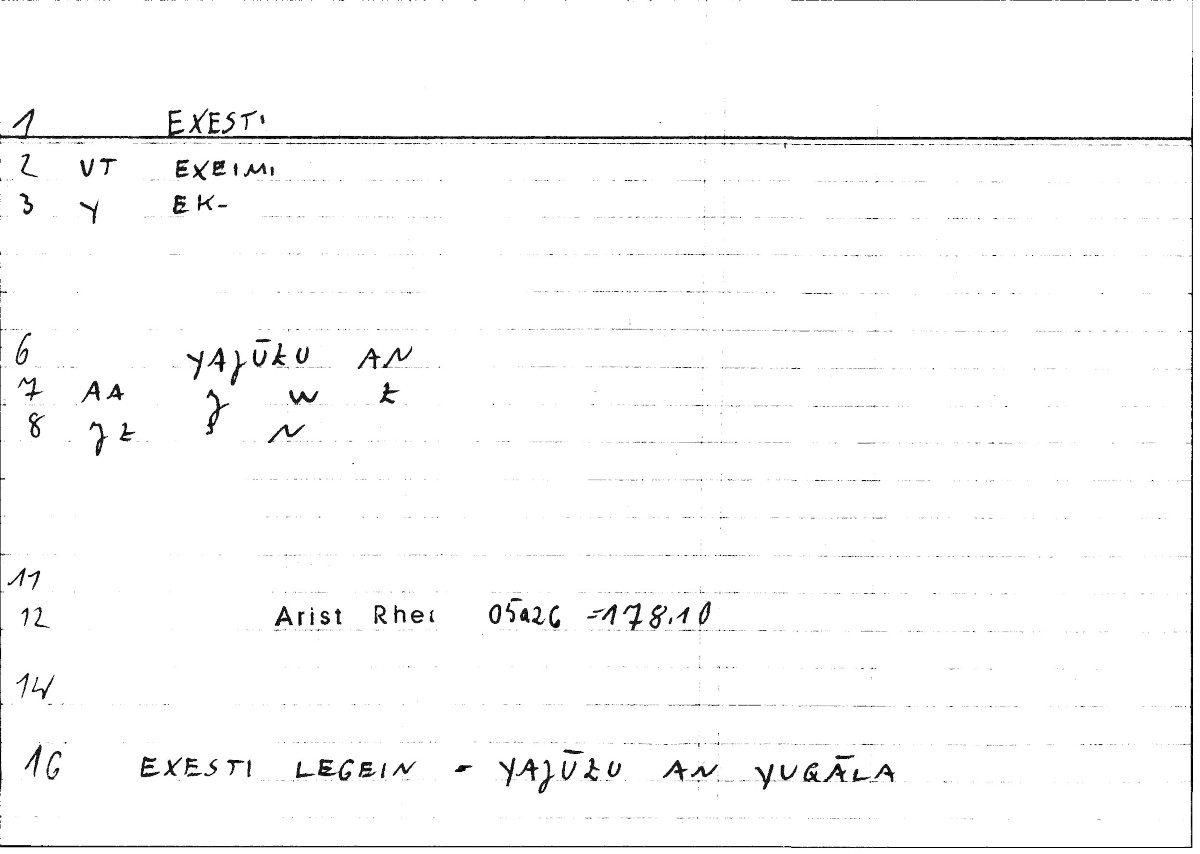 1 EXESTI
2 VT EXEIMI
3 Y EK-
6 YAJŪZU AN
7 AA J W Z
8 JZ J N
11
12 Arist Rhet 05a26 =178.10
14
16 EXESTI LEGEIN - YAJŪZU AN YUQĀLA